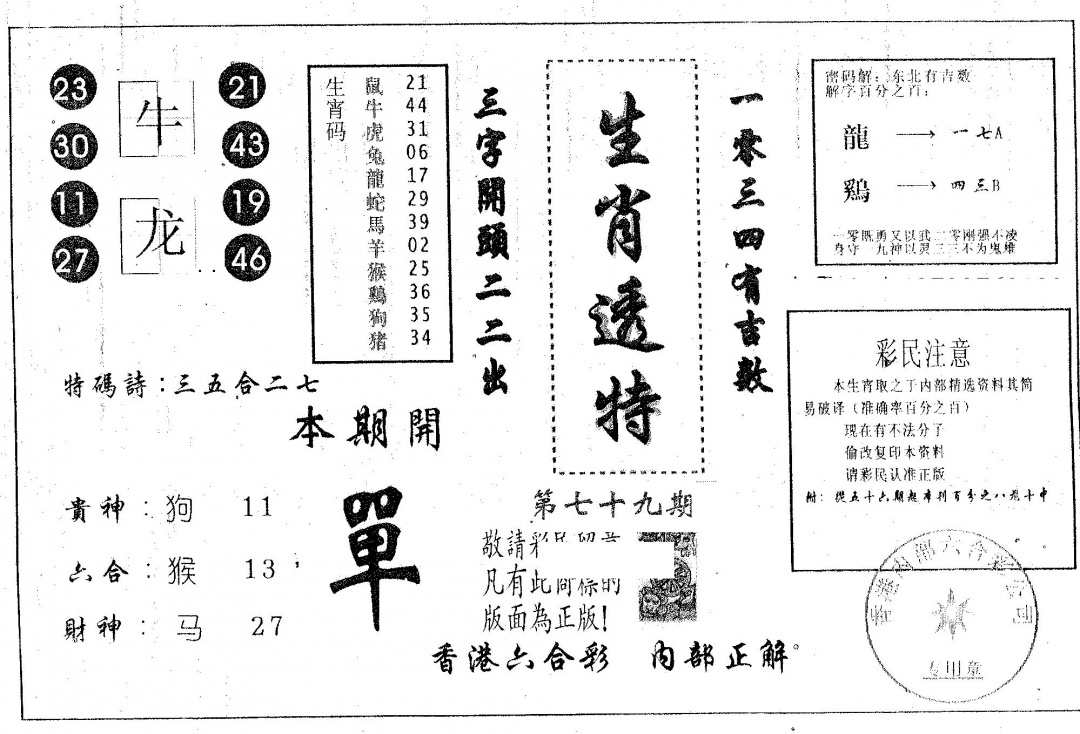 23
牛
21
30
43
11
龙
19
27
46
生宵码
鼠 21
牛 44
虎 31
兔 06
龍 17
蛇 29
馬 39
羊 02
猴 25
鷄 36
狗 35
猪 34
三字開頭二二出
生肖透特
一零三四有吉数
密码解：东北有吉数
解字百分之百：
龍 → 一七A
鷄 → 四三B
一零既勇又以武二零刚强不凌
身守 九神以灵三三不为鬼雄
特碼詩：三五合二七
本期開
單
貴神：狗 11
六合：猴 13
財神：马 27
第七十九期
敬請彩民留意
凡有此商標的
版面為正版！
香港六合彩 内部正解。
彩民注意
本生宵取之于内部精选资料其简
易破译（准确率百分之百）
现在有不法分子
偷改复印本资料
请彩民认准正版
附：從五十六期起本刊百分之八九十中
香港内部六合彩公司
专用章